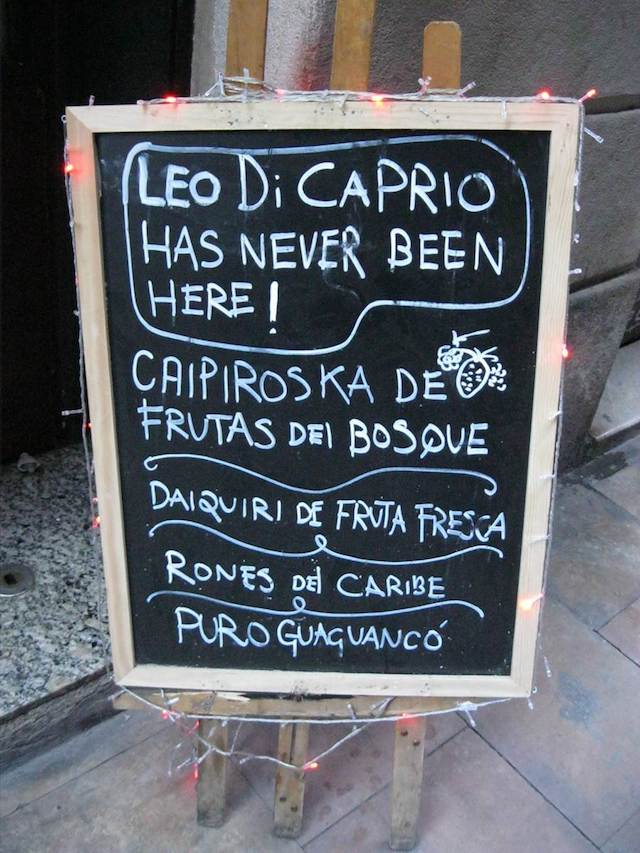 LEO Di CAPRIO
HAS NEVER BEEN
HERE!
CAIPIROSKA DE
FRUTAS DEl BOSQUE
DAIQUIRI DE FRUTA FRESCA
RONES DEl CARIBE
PURO GUAGUANCÓ